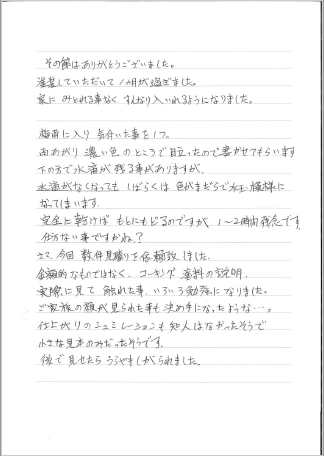 その節はありがとうございました。
塗装していただいて1ヶ月が過ぎました。
家に みとれる事なく すんなり入いれるようになりました。
梅雨に入り 気付いた事を1つ。
雨あがり 濃い色のところで目立ったので書かせてもらいます
下の方で水滴が残る事がありますが、
水滴がなくなっても しばらくは 色がまだらで水玉模様に
なってしまいます。
完全に乾けば もとにもどるのですが 1〜2時間残念です。
仕方ない事ですかね?
さて 今回 数件見積りを依頼致しました。
金額的なものではなく、コーキング 塗料の説明、
実際に見て 触れた事、いろいろ勉強になりました。
ご家族の顔が見られた事も 決め手になったような…。
仕上がりのシュミレーションも 知人はなかったそうで
小さな見本のみだったそうです。
後で見せたら うらやましがられました。